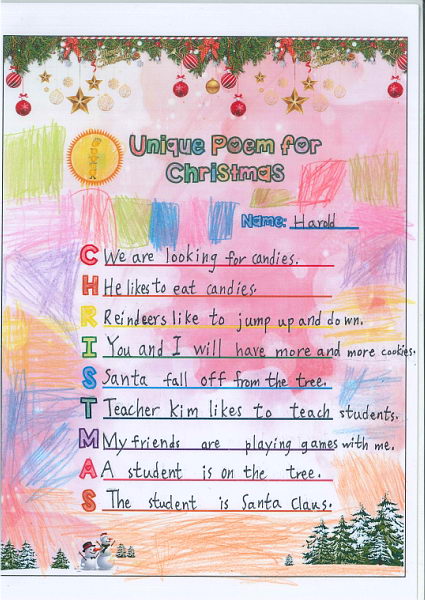 Unique Poem for
Christmas
Name: Harold
C We are looking for candies.
H He likes to eat candies.
R Reindeers like to jump up and down.
I You and I will have more and more cookies.
S Santa fall off from the tree.
T Teacher kim likes to teach students.
M My friends are playing games with me.
A A student is on the tree.
S The student is Santa Claus.